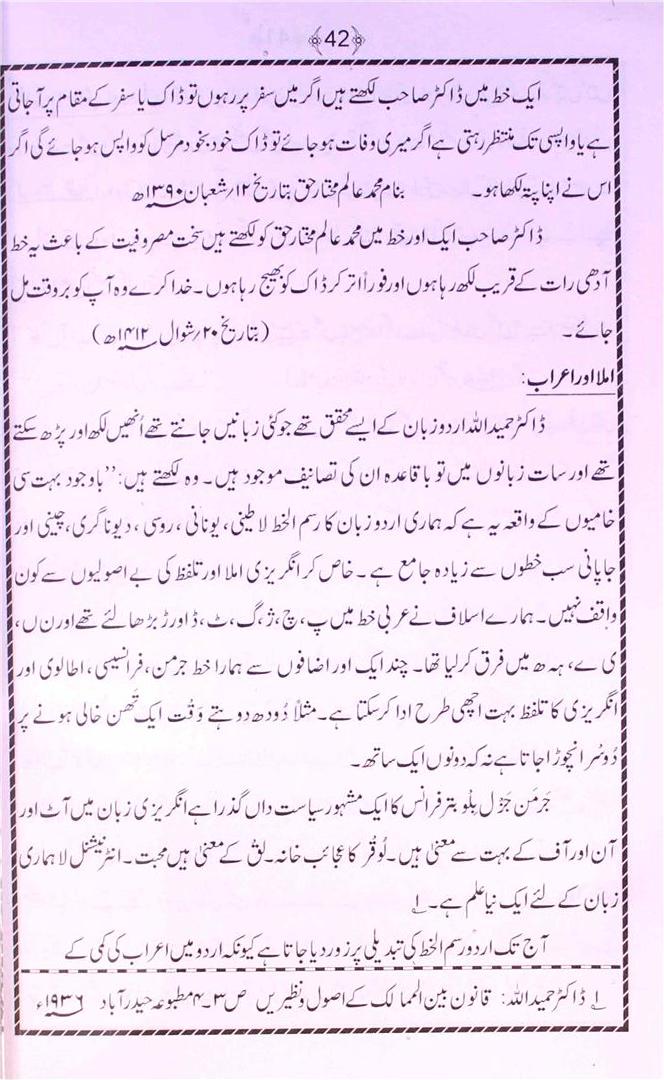 ﴿42﴾
ایک خط میں ڈاکٹر صاحب لکھتے ہیں اگر میں سفر پر رہوں تو ڈاک یا سفر کے مقام پر آجاتی
ہے یا واپسی تک منتظر رہتی ہے اگر میری وفات ہو جائے تو ڈاک خود بخود مرسل کو واپس ہو جائے گی اگر
اس نے اپنا پتہ لکھا ہو۔ بنام محمد عالم مختار حق بتاریخ ۱۲؍ شعبان ۱۳۹۰ھ
ڈاکٹر صاحب ایک اور خط میں محمد عالم مختار حق کو لکھتے ہیں سخت مصروفیت کے باعث یہ خط
آدھی رات کے قریب لکھ رہا ہوں اور فوراً اتر کر ڈاک کو بھیج رہا ہوں۔ خدا کرے وہ آپ کو بر وقت مل
جائے۔ (بتاریخ ۲۰؍ شوال ۱۴۱۲ھ)
املا اور اعراب:
ڈاکٹر حمید اللہ اردو زبان کے ایسے محقق تھے جو کئی زبانیں جانتے تھے اُنھیں لکھ اور پڑھ سکتے
تھے اور سات زبانوں میں تو با قاعدہ ان کی تصانیف موجود ہیں۔ وہ لکھتے ہیں: ’’باوجود بہت سی
خامیوں کے واقعہ یہ ہے کہ ہماری اردو زبان کا رسم الخط لاطینی، یونانی، روسی، دیوناگری، چینی اور
جاپانی سب خطوں سے زیادہ جامع ہے۔ خاص کر انگریزی املا اور تلفظ کی بے اصولیوں سے کون
واقف نہیں۔ ہمارے اسلاف نے عربی خط میں پ، چ، ژ، گ، ٹ، ڈ اور ڑ بڑھا لئے تھے اور ن ں،
ی ے، ہ ھ میں فرق کر لیا تھا۔ چند ایک اور اضافوں سے ہمارا خط جرمن، فرانسیسی، اطالوی اور
انگریزی کا تلفظ بہت اچھی طرح ادا کر سکتا ہے۔ مثلاً دُودھ دوہتے وَقْت ایک تَھن خالی ہونے پر
دُوسْرا نچوڑا جاتا ہے نہ کہ دونوں ایک ساتھ۔
جَرمَن جَرْل پِلُو بتر فرانس کا ایک مشہور سیاست داں گذرا ہے انگریزی زبان میں آٹ اور
آن اور آف کے بہت سے معنیٰ ہیں۔ لُوفْر کا عجائب خانہ۔ لَوْ کے معنیٰ ہیں محبت۔ انٹرنیشنل لا ہماری
زبان کے لئے ایک نیا علم ہے۔ ۱؎
آج تک اردو رسم الخط کی تبدیلی پر زور دیا جاتا ہے کیونکہ اردو میں اعراب کی کمی کے
۱؎ ڈاکٹر حمید اللہ: قانون بین الممالک کے اصول و نظیریں ص ۳۔۴ مطبوعہ حیدرآباد ۱۹۳۶ء